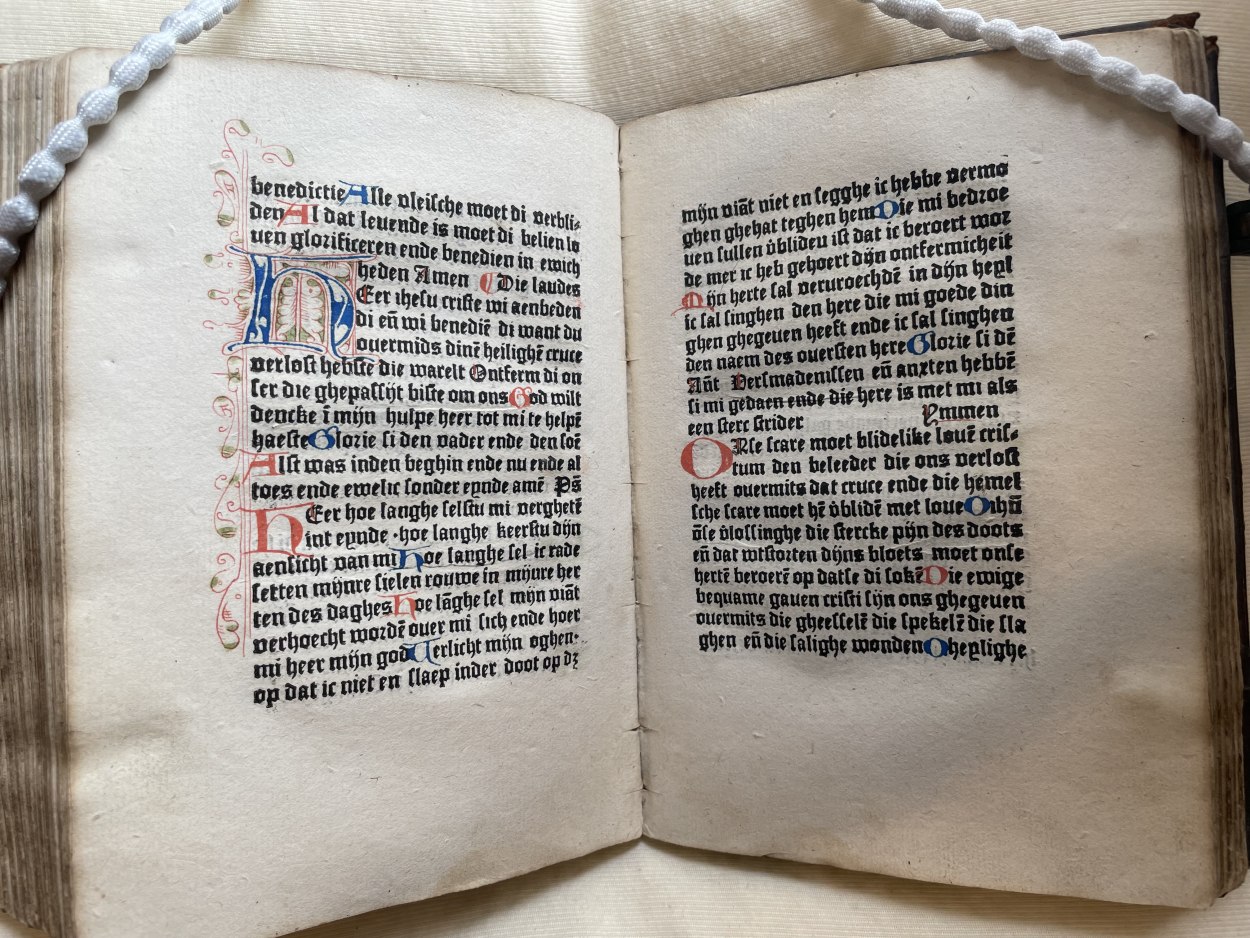 benedictie Alle vleische moet di verbli-
den Al dat leuende is moet di belien lo
uen glorificeren ende benedien in ewich
heden Amen Die laudes
HEer ihesu criste wi aenbeden
di eñ wi benediē di want du
ouermids dinē heilighē cruce
verlost hebste die warelt Ontferm di on
ser die ghepassijt biste om ons God wilt
dencke ī mijn hulpe heer tot mi te helpē
haeste Glorie si den vader ende den soē
Alst was inden beghin ende nu ende al
toes ende ewelic sonder eynde amē Ps̄
HEer hoe langhe selstu mi verghetē
int eynde ·hoe langhe keerstu dijn
aensicht van mi hoe langhe sel ic rade
setten mijnre sielen rouwe in mijnre her
ten des daghes hoe lāghe sel mijn viāt
verhoecht wordē ouer mi sich ende hoer
mi heer mijn god Verlicht mijn oghen·
op dat ic niet en slaep inder doot op dꝫ
mijn viāt niet en segghe ic hebbe vermo
ghen ghehat teghen hem Die mi bedroe
uen sullen v̄blideu ist dat ic beroert wor
de mer ic heb gehoert dijn ontfermicheit
Mijn herte sal veruroechdē in dijn heyl
ic sal singhen den here die mi goede din
ghen ghegeuen heeft ende ic sal singhen
den naem des ouersten here Glorie si dē
Añt Versmadenissen eñ anxten hebbē
si mi gedaen ende die here is met mi als
een sterc strider Ymmen
ONse scare moet blidelike louē cris-
tum den beleeder die ons verlost
heeft ouermits dat cruce ende die hemel
sche scare moet hē v̄blidē met loue O ihū
ōse v̄lossinghe die stercke pijn des doots
eñ dat wtstorten dijns bloets moet onse
hertē beroerē op datse di sokē Die ewige
bequame gauen cristi sijn ons ghegeuen
ouermits die gheeselē die spekelē die sla
ghen eñ die salighe wonden O heylighe